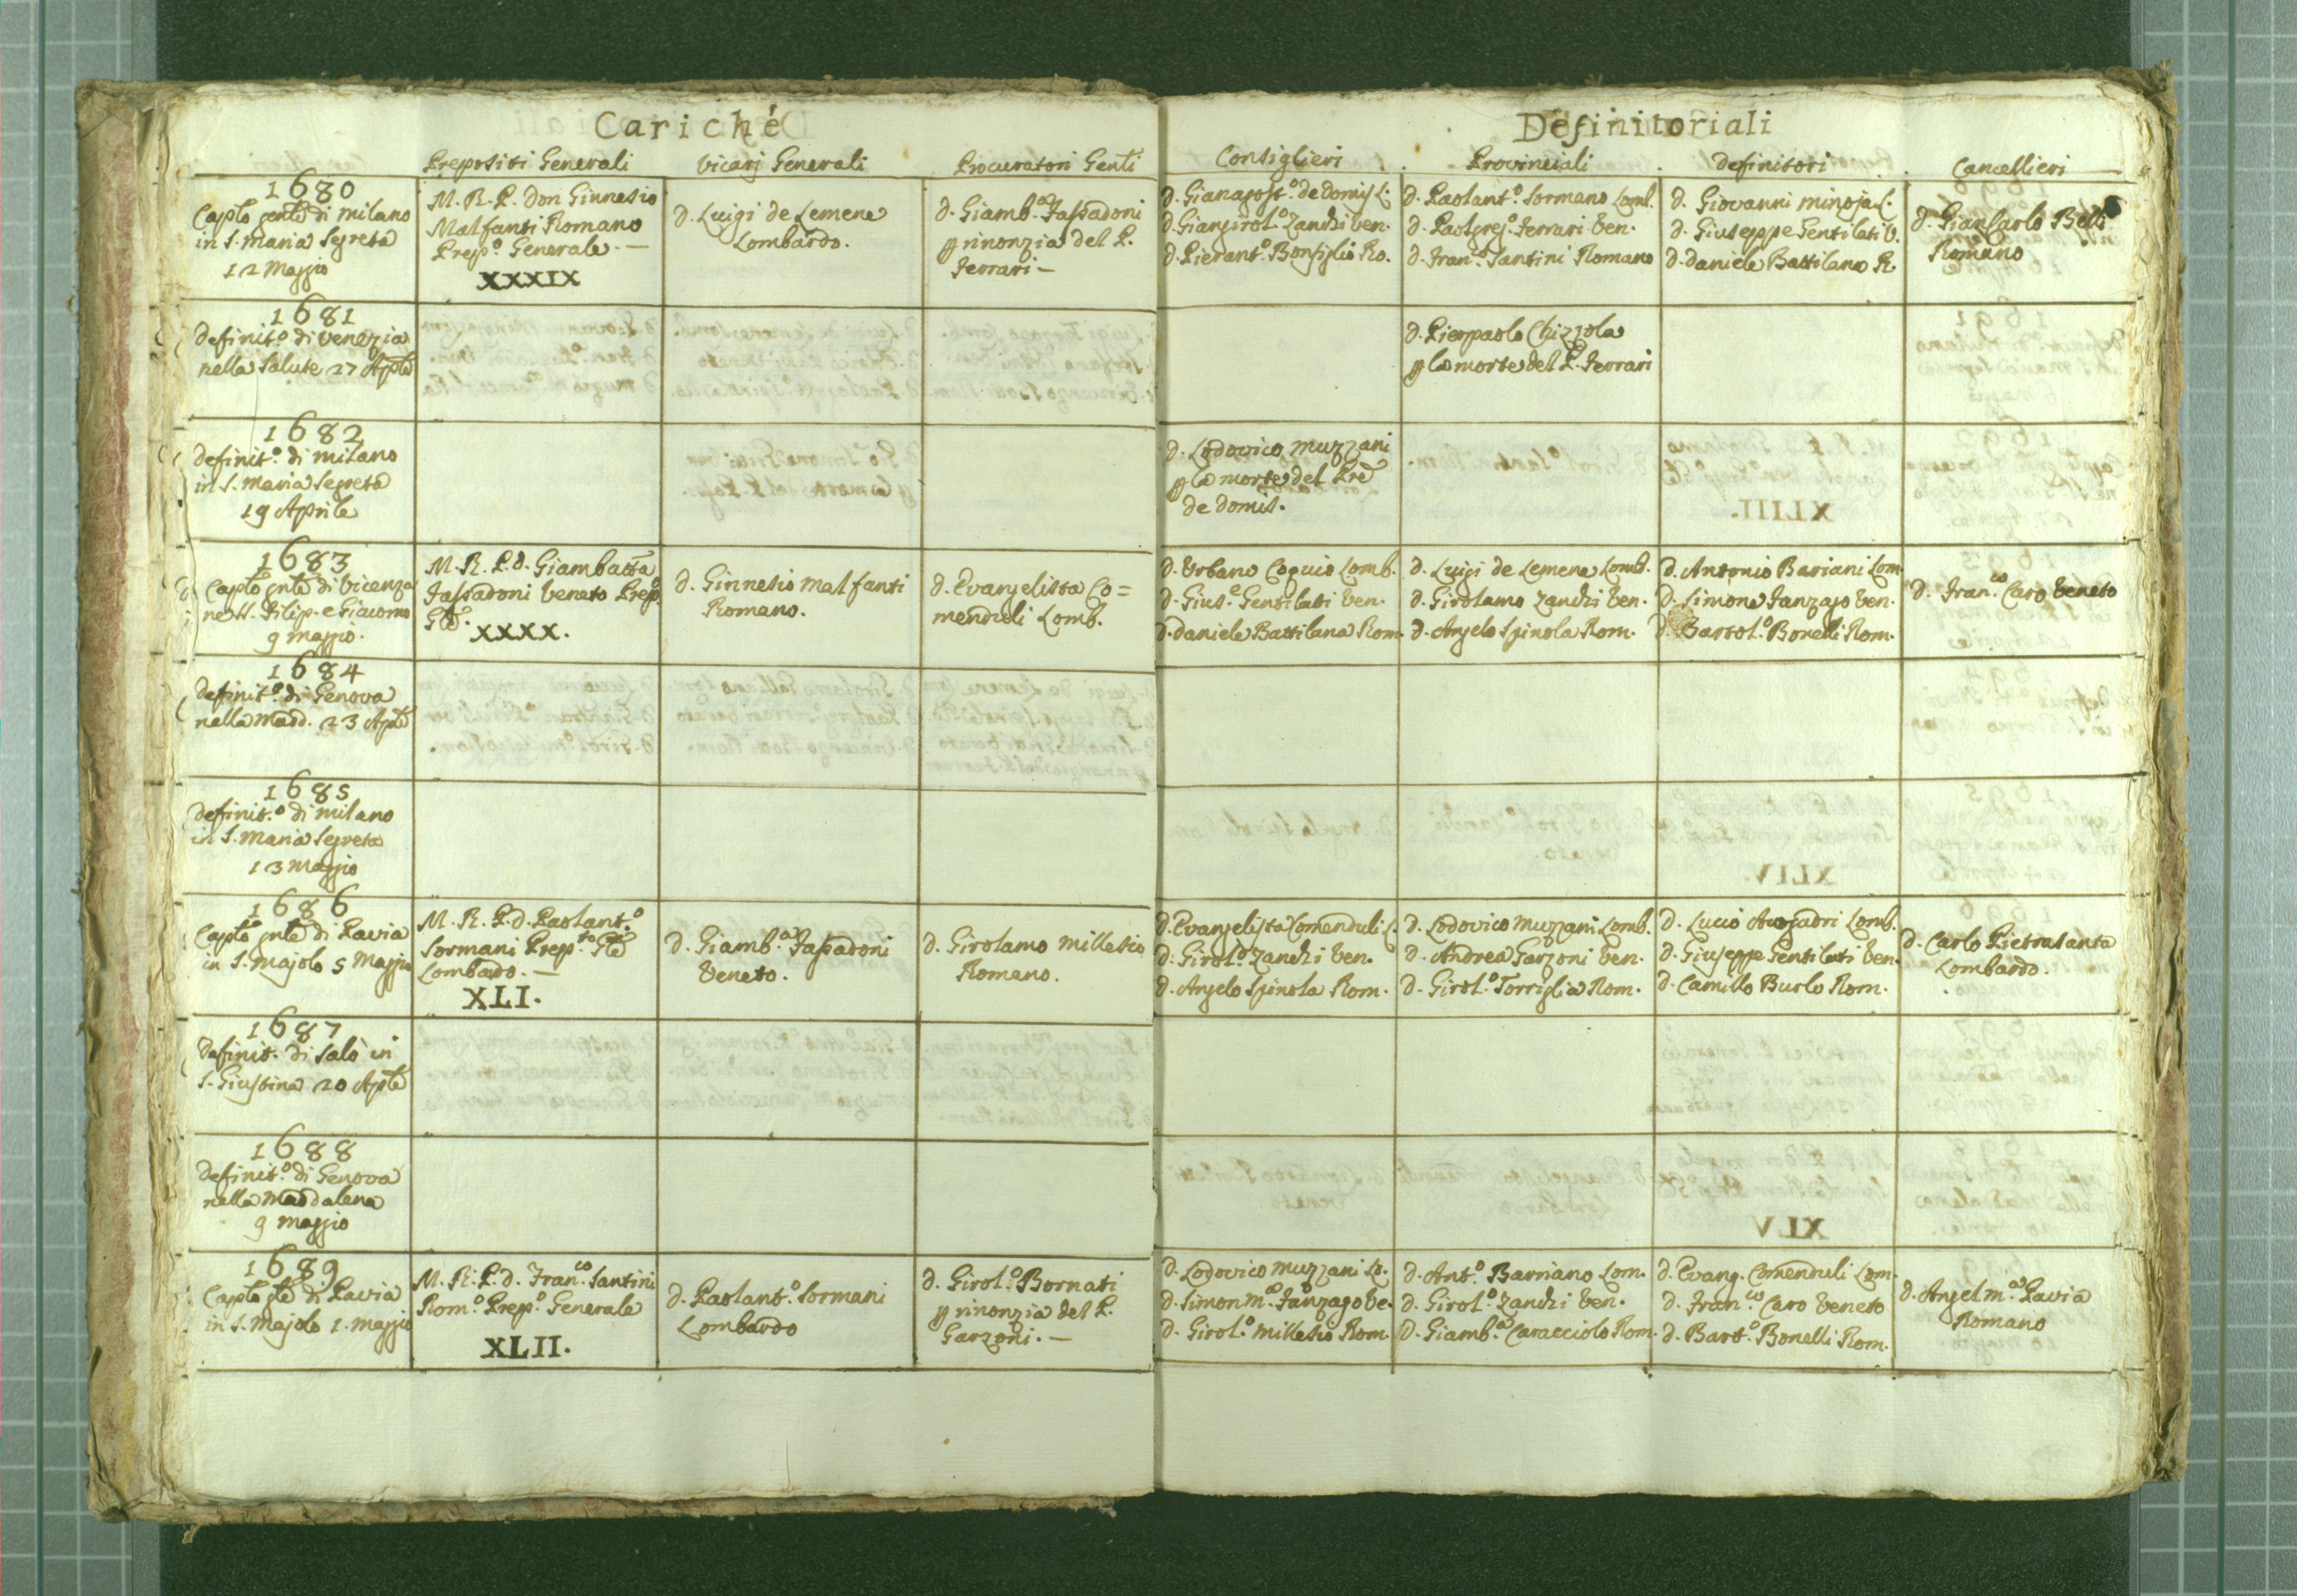 Cariche
Definitoriali
Prepositi Generali
Vicarj Generali
Procuratori Genli
Consiglieri
Provinciali
Definitori
Cancellieri
1680
Caplo genle di Milano
in S. Maria Segreta
12 Maggio
M. R. P. Don Ginnesio
Malfanti Romano
Prep.o Generale. —
XXXIX
d. Luigi de Lemene
Lombardo.
d. Giamb.a Fassadoni
p rinonzia del P.
Ferrari —
d. Gianagost.o de Domis L.
d. Giangirol.o Zanchi Ven.
d. Pierant.o Bonfiglio Ro.
d. Paolant.o Sormano Lomb.
d. Paolgreg.o Ferrari Ven.
d. Fran.co Santini Romano
d. Giovanni Minoja L.
d. Giuseppe Gentilati V.
d. Daniele Battilana R.
d. Giancarlo Belli
Romano
1681
Definit.o di Venezia
nella Salute 27 Aple
d. Pierpaolo Chizzola
p la morte del P. Ferrari
1682
Definit.o di Milano
in S. Maria Segreta
19 Aprile
d. Lodovico Muzzani
p la morte del Pre
de Domis.
1683
Caplo gnle di Vicenza
ne SS. Filip. e Giacomo
9 Maggio.
M. R. P. d. Giambatta
Fassadoni Veneto Prep.o
Gle.
XXXX.
d. Ginnesio Malfanti
Romano.
d. Evangelista Co=
menduli Lomb.
d. Urbano Coquio Lomb.
d. Gius.e Gentilati Ven.
d. Daniele Battilana Rom.
d. Luigi de Lemene Lomb.
d. Girolamo Zanchi Ven.
d. Angelo Spinola Rom.
d. Antonio Bariani Lom.
d. Simone Fanzago Ven.
d. Bartol.o Bonelli Rom.
d. Fran.co Caro Veneto
1684
Definit.o di Genova
nella Madd. 23 Aple
1685
Definit.o di Milano
in S. Maria Segreta
13 Maggio
1686
Caplo gnle di Pavia
in S. Majolo 5 Maggio
M. R. P. d. Paolant.o
Sormani Prep.to Gle
Lombardo. —
XLI.
d. Giamb.a Fassadoni
Veneto.
d. Girolamo Millesio
Romano.
d. Evangelista Comenduli L.
d. Girol.o Zanchi Ven.
d. Angelo Spinola Rom.
d. Lodovico Muzzani Lomb.
d. Andrea Garzoni Ven.
d. Girol.o Torriglia Rom.
d. Lucio Avogadri Lomb.
d. Giuseppe Gentilati Ven.
d. Camillo Burlo Rom.
d. Carlo Pietrasanta
Lombardo.
1687
Definit. di Salò in
S. Giustina 20 Aple
1688
Definit.o di Genova
nella Maddalena
9 Maggio
1689
Caplo gle di Pavia
in S. Majolo 1. Maggio
M. R. P. d. Fran.co Santini
Rom.o Prep.o Generale
XLII.
d. Paolant.o Sormani
Lombardo
d. Girol.o Bornati
p rinonzia del P.
Garzoni. —
d. Lodovico Muzzani Lo.
d. Simon M.a Fanzago Ve.
d. Girol.o Millesio Rom.
d. Ant.o Barriano Lom.
d. Girol.o Zanchi Ven.
d. Giamb.a Caracciolo Rom.
d. Evang. Comenduli Lom.
d. Fran.co Caro Veneto
d. Bart.o Bonelli Rom.
d. Angel M.a Pavia
Romano